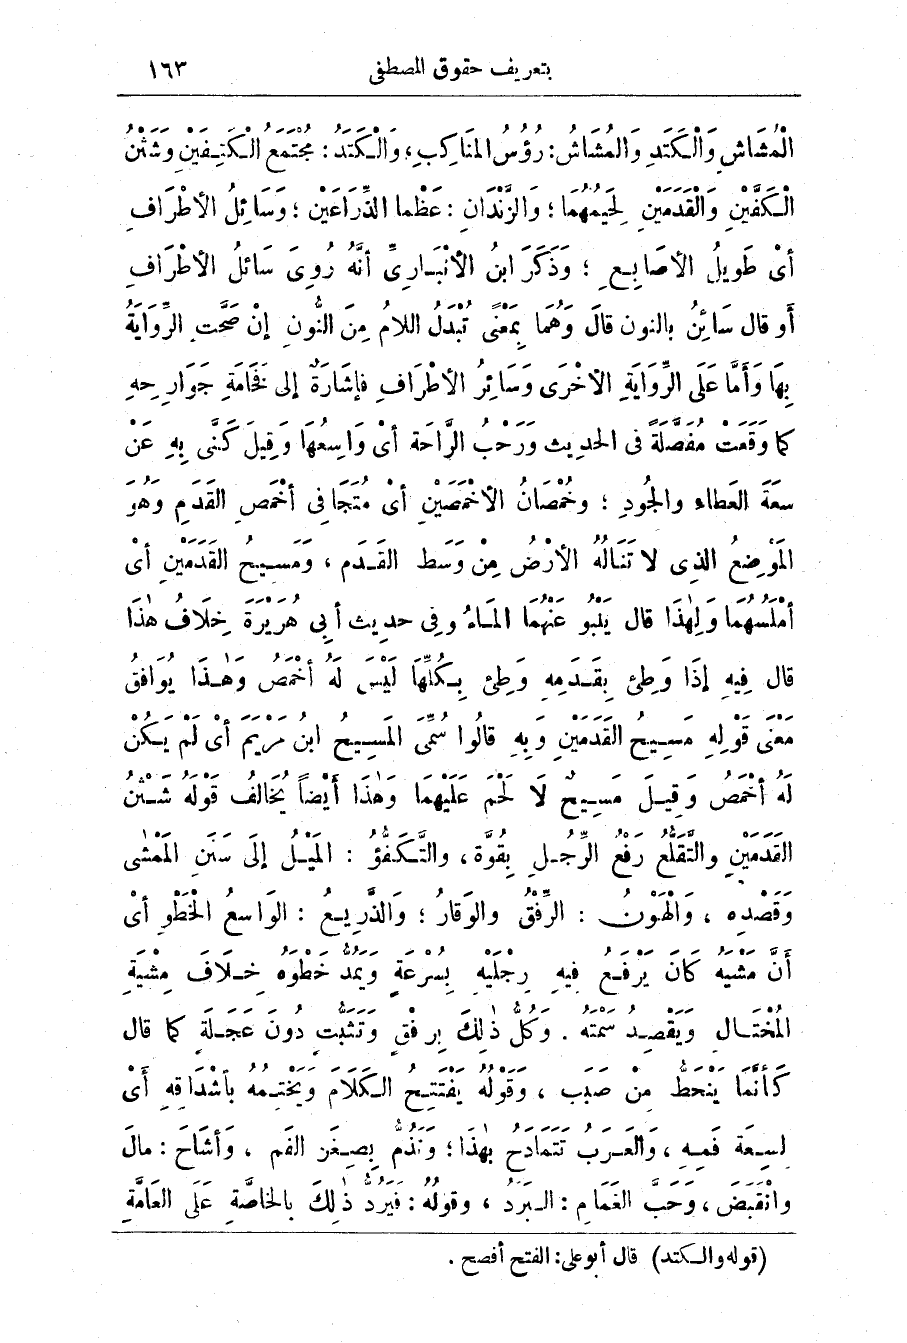 بتعريف حقوق المصطفى ١٦٣
الْمُشَاشِ وَالْكَتَدِ وَالْمُشَاشُ: رُؤُسُ المَنَاكِبِ، وَالْكَتَدُ: مُجْتَمَعُ الْكَتِفَيْنِ وَشَثْنُ
الْكَفَّيْنِ وَالْقَدَمَيْنِ لَحِيمُهُمَا؛ وَالزَّنْدَانِ: عَظْما الذِّرَاعَيْنِ؛ وَسَائِلُ الأطْرَافِ
أىْ طَوِيلُ الأصَابِعِ؛ وَذَكَرَ ابنُ الأَنْبَارِىِّ أنَّهُ رُوِىَ سَائلُ الأطْرَافِ
أو قال سَائِنُ بالنون قالَ وَهُمَا بِمَعْنًى تُبْدَلُ اللامُ مِنَ النُّونِ إنْ صَحَّتِ الرِّوَايَةُ
بِهَا وَأَمَّا عَلَى الرِّوَايَةِ الأخْرَى وَسَائِرُ الأطْرَافِ فإِشَارَةٌ إلى فَخَامَةِ جَوَارِحِهِ
كما وَقَعَتْ مُفَصَّلَةً فى الحديث وَرَحْبُ الرَّاحَة أىْ وَاسِعُهَا وَقِيلَ كَنَّى بِهِ عَنْ
سعَة العَطاء والجُودِ؛ وخُمْصَانُ الأخْمَصَيْنِ أىْ مُتَجَافى أخْمَصِ القَدَمِ وَهُوَ
المَوْضِعُ الذى لا تَنَالُهُ الأرْضُ مِنْ وَسَط القَدَم، وَمَسِيحُ القَدَمَيْنِ أىْ
أمْلَسُهُمَا وَلِهٰذَا قال يَنْبُو عَنْهُمَا المَاءُ وفى حديث أبى هُرَيْرَةَ خِلَافُ هٰذَا
قال فِيهِ إذَا وَطِئَ بِقَدَمِهِ وَطِئَ بِكُلِّهَا لَيْسَ لَهُ أخْمَصُ وَهٰذَا يُوَافِقُ
مَعْنَى قَوْلِهِ مَسِيحُ القَدَمَيْنِ وَبِهِ قالُوا سُمِّىَ المَسِيحُ ابن مَرْيَم أى لَمْ يَكُنْ
لَهُ أخْمَصُ وَقِيلَ مَسِيحٌ لَا لَحْمَ عَلَيْهِمَا وَهٰذَا أَيْضاً يُخَالفُ قَوْلَهُ شَثْنُ
القَدَمَيْنِ والتَّقَلُّعُ رَفْعُ الرِّجْلِ بِقُوَّة، والتَّكَفُّؤُ: المَيْلُ إلَى سَنَنِ المَمْشَى
وَقَصْدِهِ، وَالْهَوْنُ: الرِّفْقُ والوَقارُ؛ وَالذَّرِيعُ: الوَاسعُ الخَطْوِ أىْ
أَنَّ مَشْيَهُ كَانَ يَرْفَعُ فيهِ رِجْلَيْهِ بِسُرْعَةٍ وَيَمُدُّ خَطْوَهُ خِلَافَ مِشْيَةِ
المُخْتَالِ وَيَقْصِدُ سَمْتَهُ. وَكُلُّ ذٰلِكَ بِرِفْقٍ وَتَثَبُّت دُونَ عَجَلَةٍ كما قال
كَأَنَّمَا يَنْحَطُّ مِنْ صَبَب، وَقَوْلُهُ يَفْتَتِحُ الكَلَامَ وَيَخْتِمُهُ بأَشْدَاقِهِ أىْ
لِسِعَة فَمِهِ، وَالْعَرَبُ تَتَمَادَحُ بِهٰذَا؛ وَتَذُمُّ بِصِغَرِ الفَم، وَأشَاحَ: مالَ
وانْقَبَضَ، وَحَبُّ الغَمَامِ: البَرَدُ، وقولُهُ: فَيَرُدُّ ذٰلِكَ بالخاصَّة عَلَى العَامَّةِ
(قوله والكتد) قال أبوعلى: الفتح أفصح.